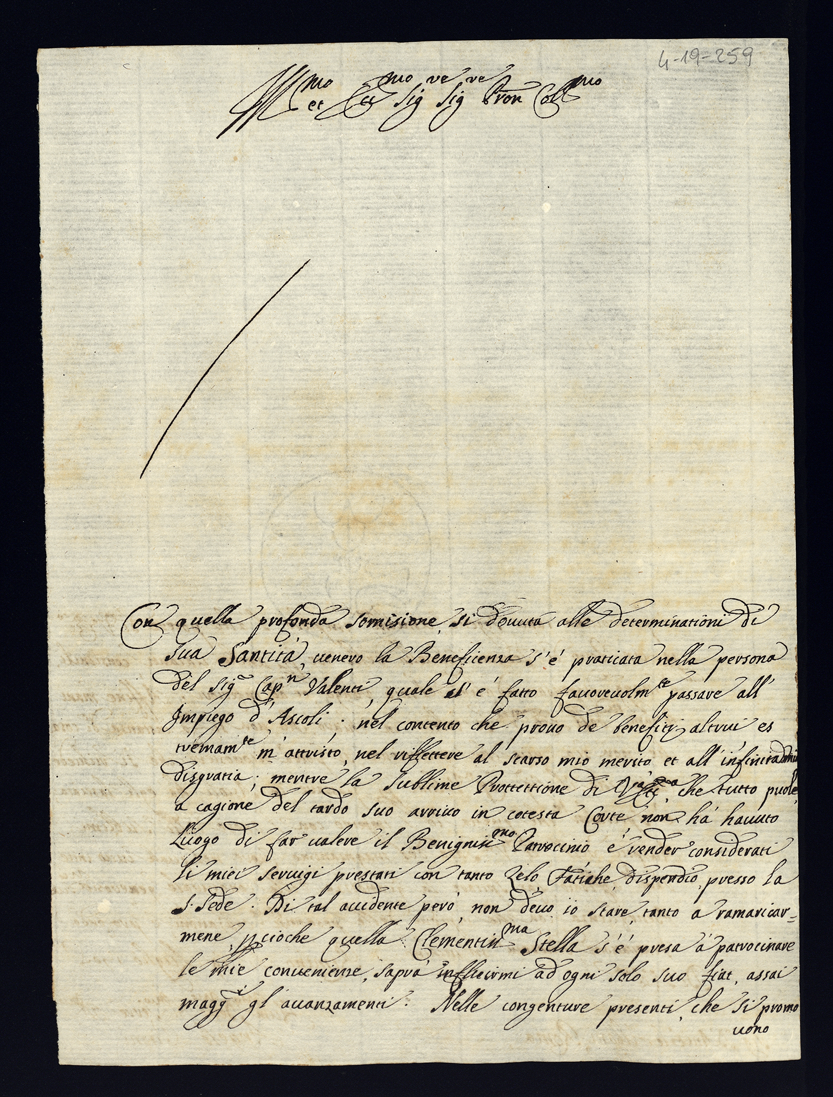 4-19-259
Ill.mo et Ecc.mo Sig.re Sig.re Pron Coll.mo
Con quella profonda somisione, si douuta alle determinationi di
sua Santità, uenero la Beneficenza s'é praticata nella persona
del Sig.r Cap.n Valenti, quale s'é fatto fauoreuolm.te passare all'
Impiego d'Ascoli: nel contento che prouo de benefitij altrui es
tremam.te m'attristo, nel riflettere al scarso mio merito et all'infinita mia
disgratia; mentre la sublime Prottettione di che tutto puole,
a cagione del tardo suo arriuo in cotesta Corte non há hauuto
Luogo di far ualere il Benignis.mo Patrocinio é render considerati
li miei seruigi prestati con tanto zelo fatiche, dispendio, presso la
S. Sede. Di tal accidente peró, non deuo io stare tanto a ramaricar=
mene, cioche quella Clementin.ma Stella s'é presa á patrocinare
le mie conuenienze, saprá influirmi ad ogni solo suo fiat, assai
magg.ri gl'auanzamenti. Nelle congenture presenti, che si promo
uono